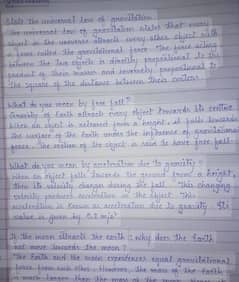 State the universal law of gravitation.
The universal law of gravitation states that every
object in the universe attracts every other object with
a force called the gravitational force. The force acting
between the two objects is directly proportional to the
product of their masses and inversely proportional to
the square of the distance between their centres.
What do you mean by free fall?
Gravity of Earth attracts every object towards its centre
When an object is released from a height, it falls towards
the surface of the Earth under the influence of gravitational
force. The motion of the object is said to have free fall.
What do you mean by acceleration due to gravity?
When an object falls towards the ground from a height,
then its velocity changes during the fall. This changing
velocity produces acceleration in the object. This
acceleration is known as acceleration due to gravity. Its
value is given by 9.8 m/s²
If the moon attracts the earth; why does the Earth
not move towards the moon?
The Earth and the moon experiences equal gravitational
forces from each other. However, the mass of the Earth
is much larger than the mass of the